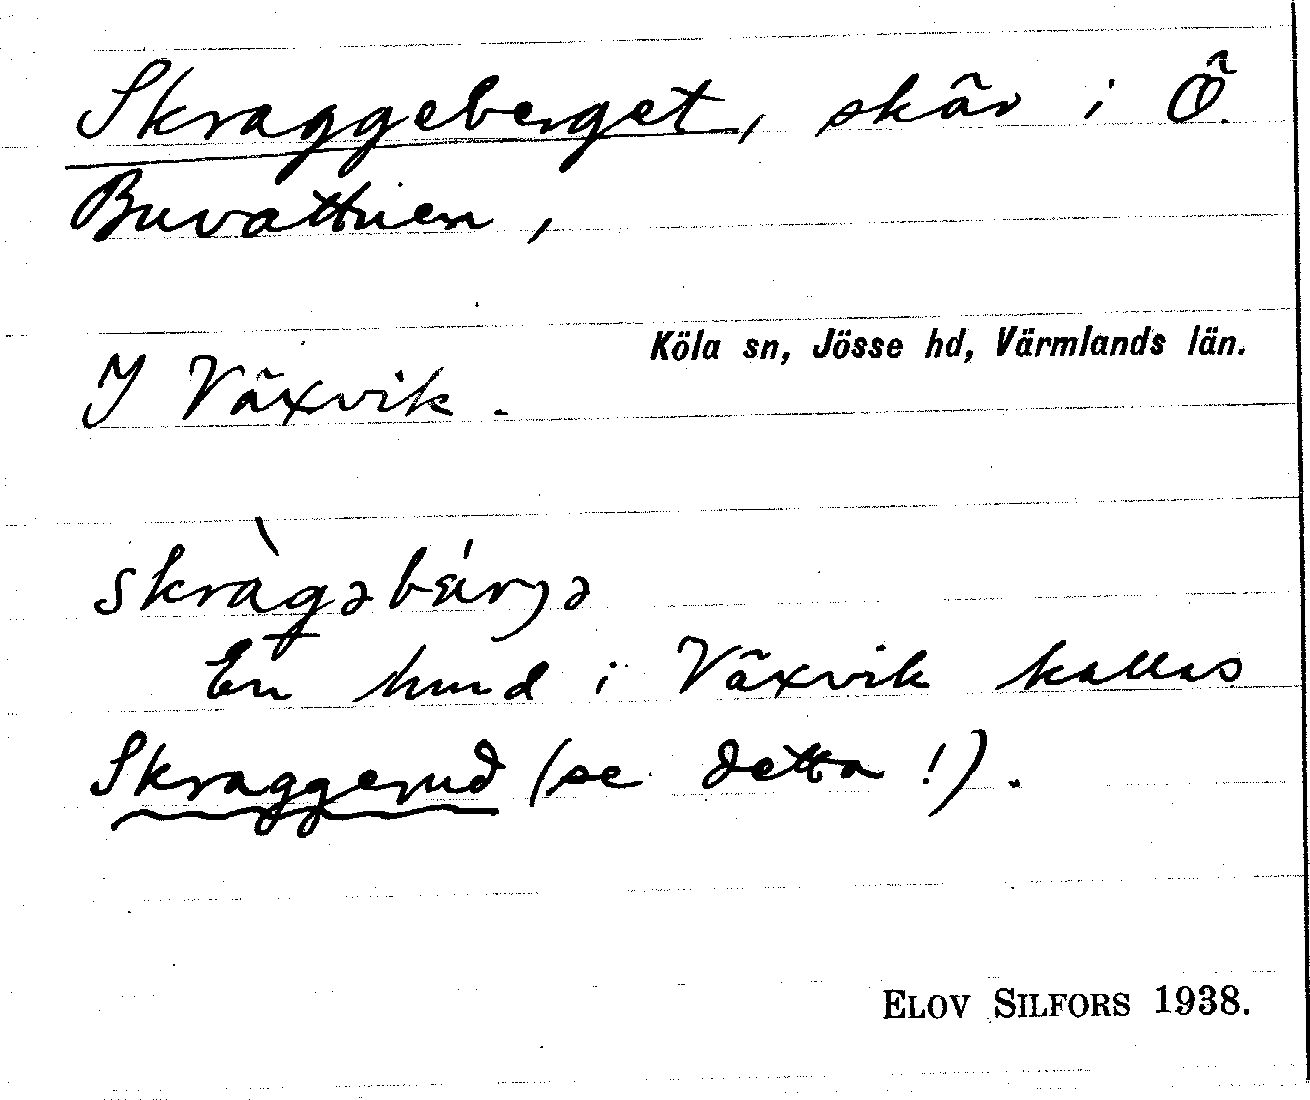 Skraggeberget, skär i Ö.
Buvattnen,
Köla sn, Jösse hd, Värmlands län.
I Växvik.
skràgəbǽrjə
En hund i Växvik kallas
Skraggerud (se detta!).
ELOV SILFORS 1938.